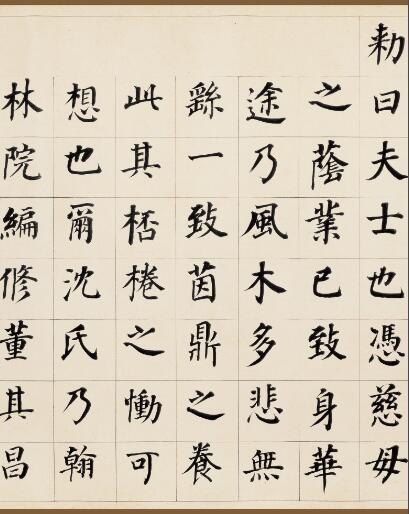 勑曰夫士也憑慈母
之蔭業已致身華
途乃風木多悲無
繇一致茵鼎之養
此其桮棬之慟可
想也爾沈氏乃翰
林院編修董其昌